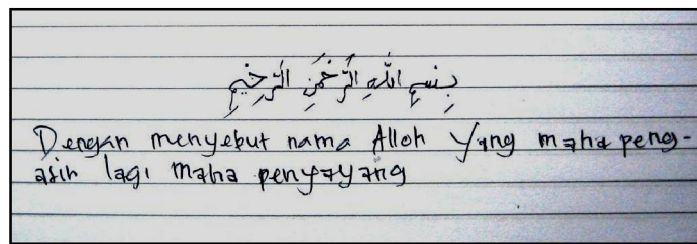 بِسْمِ اللّٰهِ الرَّحْمٰنِ الرَّحِيْمِ
Dengan menyebut nama Alloh Yang maha peng-
asih lagi maha penyayang